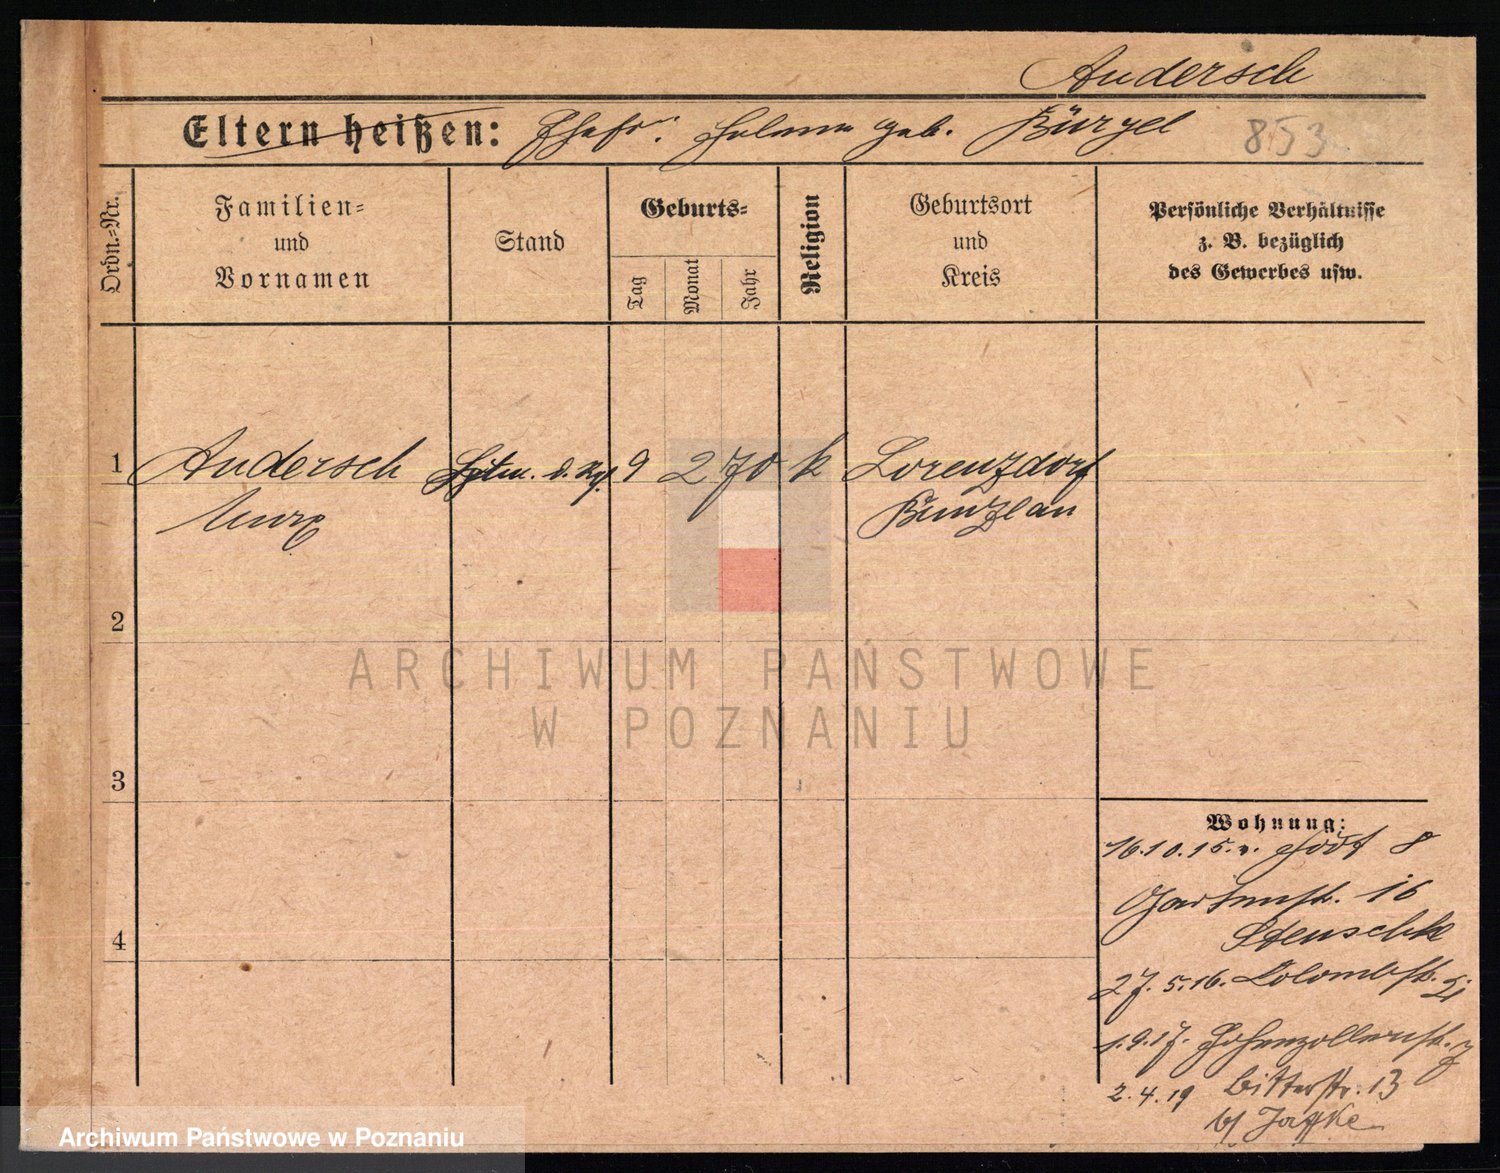 Andersch
Eltern heißen: Ehefr: Helene geb. Bürgel
853
Ordn.=Nr.
Familien=
und
Vornamen
Stand
Geburts=
Tag
Monat
Jahr
Religion
Geburtsort
und
Kreis
Persönliche Verhältnisse
z. B. bezüglich
des Gewerbes usw.
1 Andersch Hptm. d. 9 2 70 k Lorenzdorf
Max Bunzlau
2
3
4
ARCHIWUM PAŃSTWOWE
W POZNANIU
Wohnung:
16.10.15. v. 8
Gartenstr. 16
Stenschke
27. 5. 16. Colombstr.
1.9.17. Hohenzollernstr.
2.4.19 Bitterstr. 13
b/ Jaffke
Archiwum Państwowe w Poznaniu